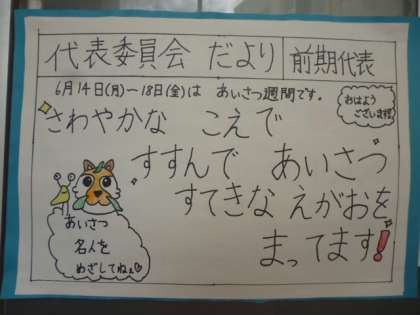 代表委員会 だより 前期代表
6月14日(月)~18日(金)は あいさつ週間です。
おはよう
ございます
さわやかな こえで
すすんで あいさつ
すてきな えがおを
まってます!
あいさつ
名人を
めざしてねぇ